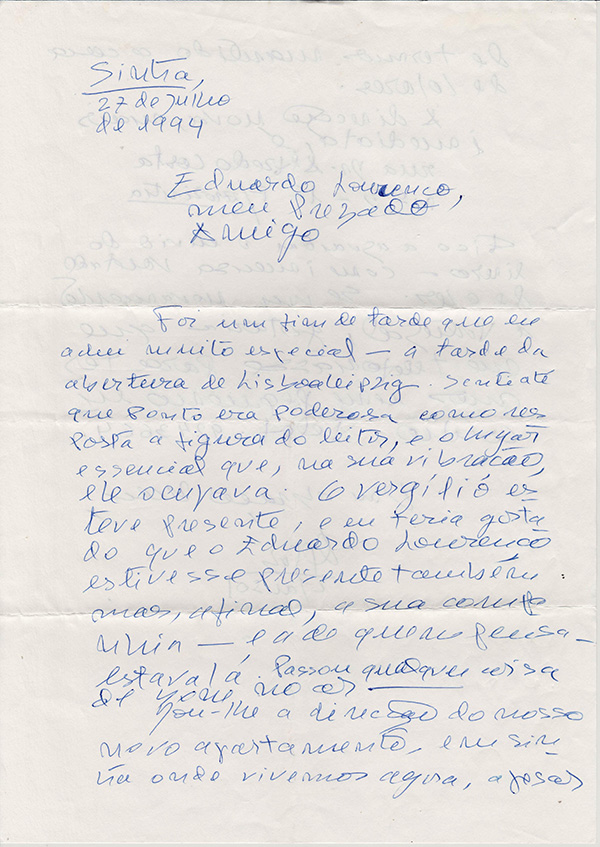 Sintra,
27 de julho
de 1994
Eduardo Lourenço,
meu Prezado
Amigo
Foi um fim de tarde que eu
achei muito especial — a tarde da
abertura de Lisboaleipzig. Senti até
que ponto era poderosa como res
posta a figura do leitor, e o lugar
essencial que, na sua vibração,
ele ocupava. O Vergílio es
teve presente, e eu teria gosta
do que o Eduardo Lourenço
estivesse presente também
mas, afinal, a sua
— e a de quem pensa —
estava lá. Passou qualquer coisa
de no ar
Dou-lhe a direcção do nosso
novo apartamento, em Sin-
tra onde vivemos agora, apesar